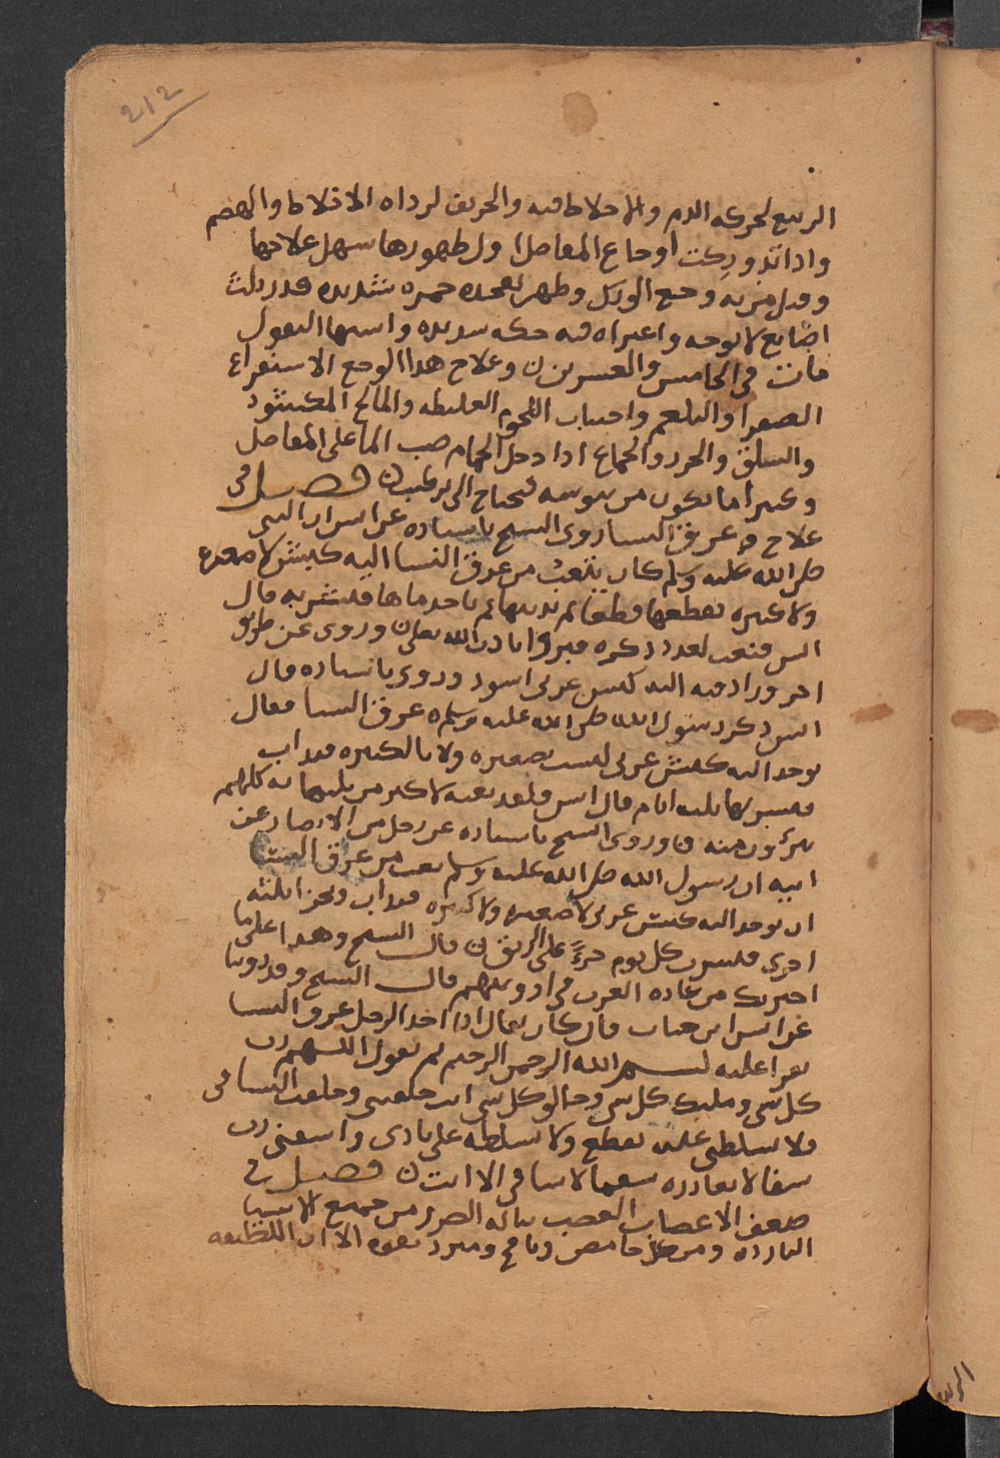 212
الربيع لحركه الدم والاخلاط فيه والخريف لرداه الاخلاط والهضم
واذا تدوركت اوجاع المفاصل اول ظهورها سهل علاجها
وقيل من به وجع الورك وظهر بفخده حمره شديده قدر ثلث
اصابع لا توجعه واعتراه فيه حكه شديده واشتها البقول
مات في الخامس والعشرين ن وعلاج هذا الوجع الاستفراغ
الصفرا والبلغم واجتناب اللحوم الغليظه والمالح المكسود
والسلق والجزر والجماع اذا دخل الحمام صب الما على المفاصل
وكثيرا ما يكون من يبوسه فيحتاج الى ترطيب ن فصل في
علاج عرق النسا روى الشيخ باسناده عن انس ان النبي
صلى الله عليه وسلم كان ينعت من عرق النسا اليه كبش لا صغيره
ولا كبيره يقطعها قطعا ثم يذيبها ثم ياخد ماها فليشربه قال
انس فنعت لعدد ذكره فبروا باذن الله تعالى ن وروى عن طريق
اخر وزاد فيه اليه كبش عربي اسود وروى باسناده قال
انس ذكر رسول الله صلى الله عليه وسلم عرق النسا فقال
يوخد اليه كبش عربي ليست بصغيره ولا بالكبيره فيداب
فيشربها ثلثه ايام قال انس ولقد نعته لاكثر من ثلثمايه كلهم
يبرون منه ن وروى الشيخ باسناده عن رجل من الانصار عن
ابيه ان رسول الله صلى الله عليه وسلم نعت من عرق النسا
ان يوخد اليه كبش عربي لا صغيره ولا كبيره فيداب وتجزا ثلثه
اجزى فيشرب كل يوم جزءً على الريق ن قال الشيخ وهدا على ما
اخبرتك من عاده العرب في ادويتهم قال الشيخ وقد روينا
عن انس قال كان يقال اذا اخد الرجل عرق النسا
يقرا عليه بسم الله الرحمن الرحيم ثم يقول اللهم رب
كل شي ومليك كل شي وخالق كل شي انت خلقتني وخلقت النسا في
فلا تسلطني عليه بقطع ولا تسلطه علي باذى واشفني رب
شفا لا يغادره سقما لا شافي الا انت ن فصل في
ضعف الاعصاب العصب يناله الضرر من جميع الاشيا
البارده ومن كل حامض ومبرد بقوه الا ان اللطيفه